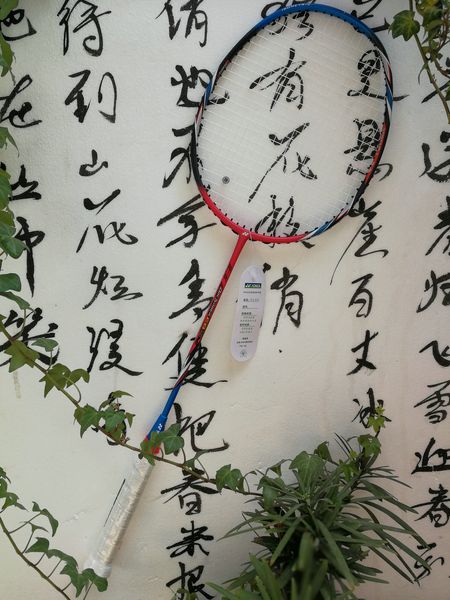 送春归飞雪迎春到
已是悬崖百丈冰
犹有花枝俏
俏也不争春只把春来报
待到山花烂漫
她在丛中笑
YONEX